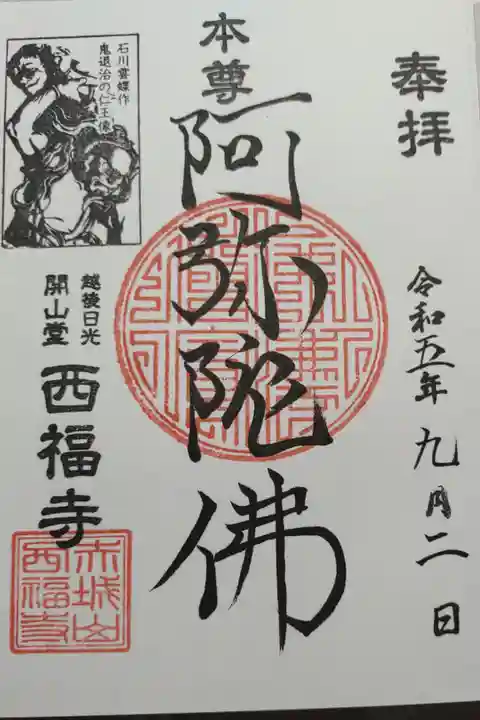 奉拝
令和五年九月二日
本尊
阿弥陀佛
石川雲蝶作
鬼退治の仁王像
越後日光
開山堂
西福寺
赤城山
西福寺